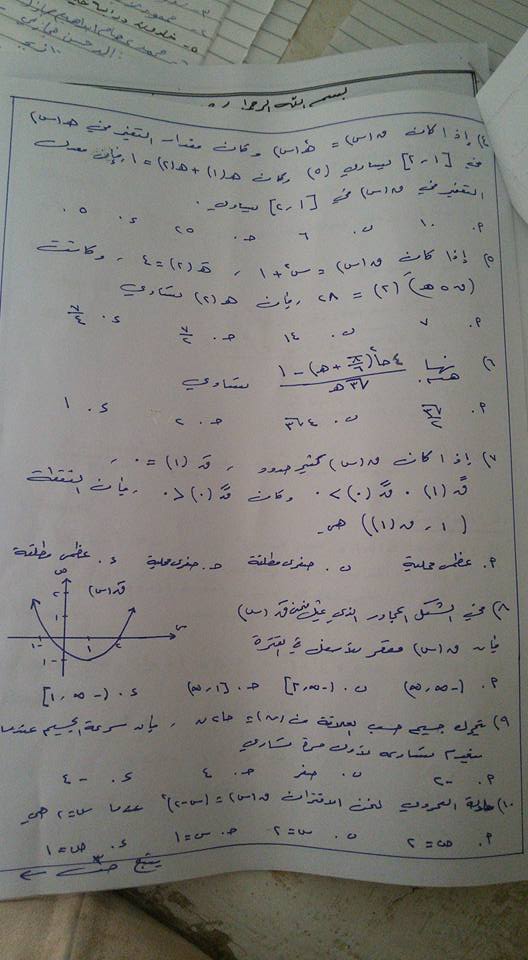 بسم الله الرحمن
٤) إذا كان ق(س) = هـ²(س) وكان مقدار التغير في هـ(س)
في [١، ٢] يساوي (٥) وكان هـ(١) + هـ(٢) = ١ فإن معدل
التغير في ق(س) في [١، ٢] يساوي
٩. ١٠ ب. ٦ جـ. ٢٥ د. ٥
٥) إذا كان ق(س) = س² + ١ ، هـَ(٢) = ٤ ، وكانت
(ق ∘ هـ)َ(٢) = ٢٨ فإن هـ(٢) تساوي
٩. ٧ ب. ١٤ جـ. ٧/٢ د. ٧/٤
٦) نهـــا هـ←٠ (٤جا²(π/٦ + هـ) − ١)/(√٣ هـ) تساوي
٩. √٣/٢ ب. ٤√٣ جـ. ٢ د. ١
٧) إذا كان ق(س) كثير حدود ، قَ(١) = ٠ ،
قً(١) · قً(٠) > ٠ وكان قً(٠) < ٠ ، فإن النقطة
(١، ق(١)) هي
٩. عظمى محلية ب. صغرى مطلقة جـ. صغرى محلية د. عظمى مطلقة
٨) في الشكل المجاور الذي يمثل منحنى قَ(س)
فإن ق(س) مقعر للأسفل في الفترة
ص
قَ(س)
٢
١
س
-١ ١ ٢
-١
٩. (-∞، ∞) ب. (-∞، ٢] جـ. [١، ∞) د. (-∞، ١]
٩) يتحرك جسيم حسب العلاقة ف(ن) = جا٢ن ، فإن سرعة الجسيم عندما
ينعدم تسارعه لأول مرة تساوي
٩. -٢ ب. صفر جـ. ٤ د. -٤
١٠) معادلة العمودي لمنحنى الاقتران ق(س) = (س-٢)² عندما س = ٢ هي
٩. ص = ٢ ب. س = ٢ جـ. س = ١ د. ص = ١
يتبع